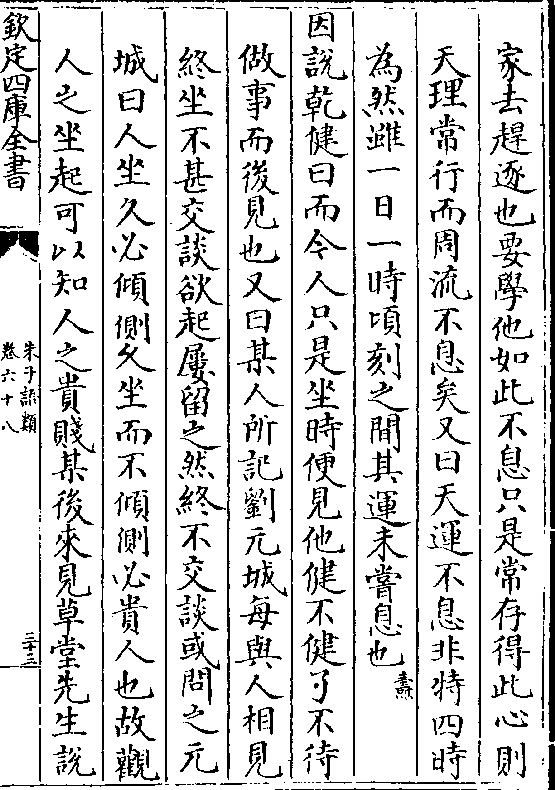 家去趕逐也要學他如此不息只是常存得此心則
天理常行而周流不息矣又曰天運不息非特四時
為然雖一日一時頃刻之間其運未嘗息也燾
因說乾健曰而今人只是坐時便見他健不健了不待
做事而後見也又曰某人所記劉元城每與人相見
終坐不甚交談欲起屢留之然終不交談或問之元
城曰人坐久必傾側久坐而不傾側必貴人也故觀
人之坐起可以知人之貴賤某後來見草堂先生說
欽定四庫全書
朱子語類
卷六十八
三十三